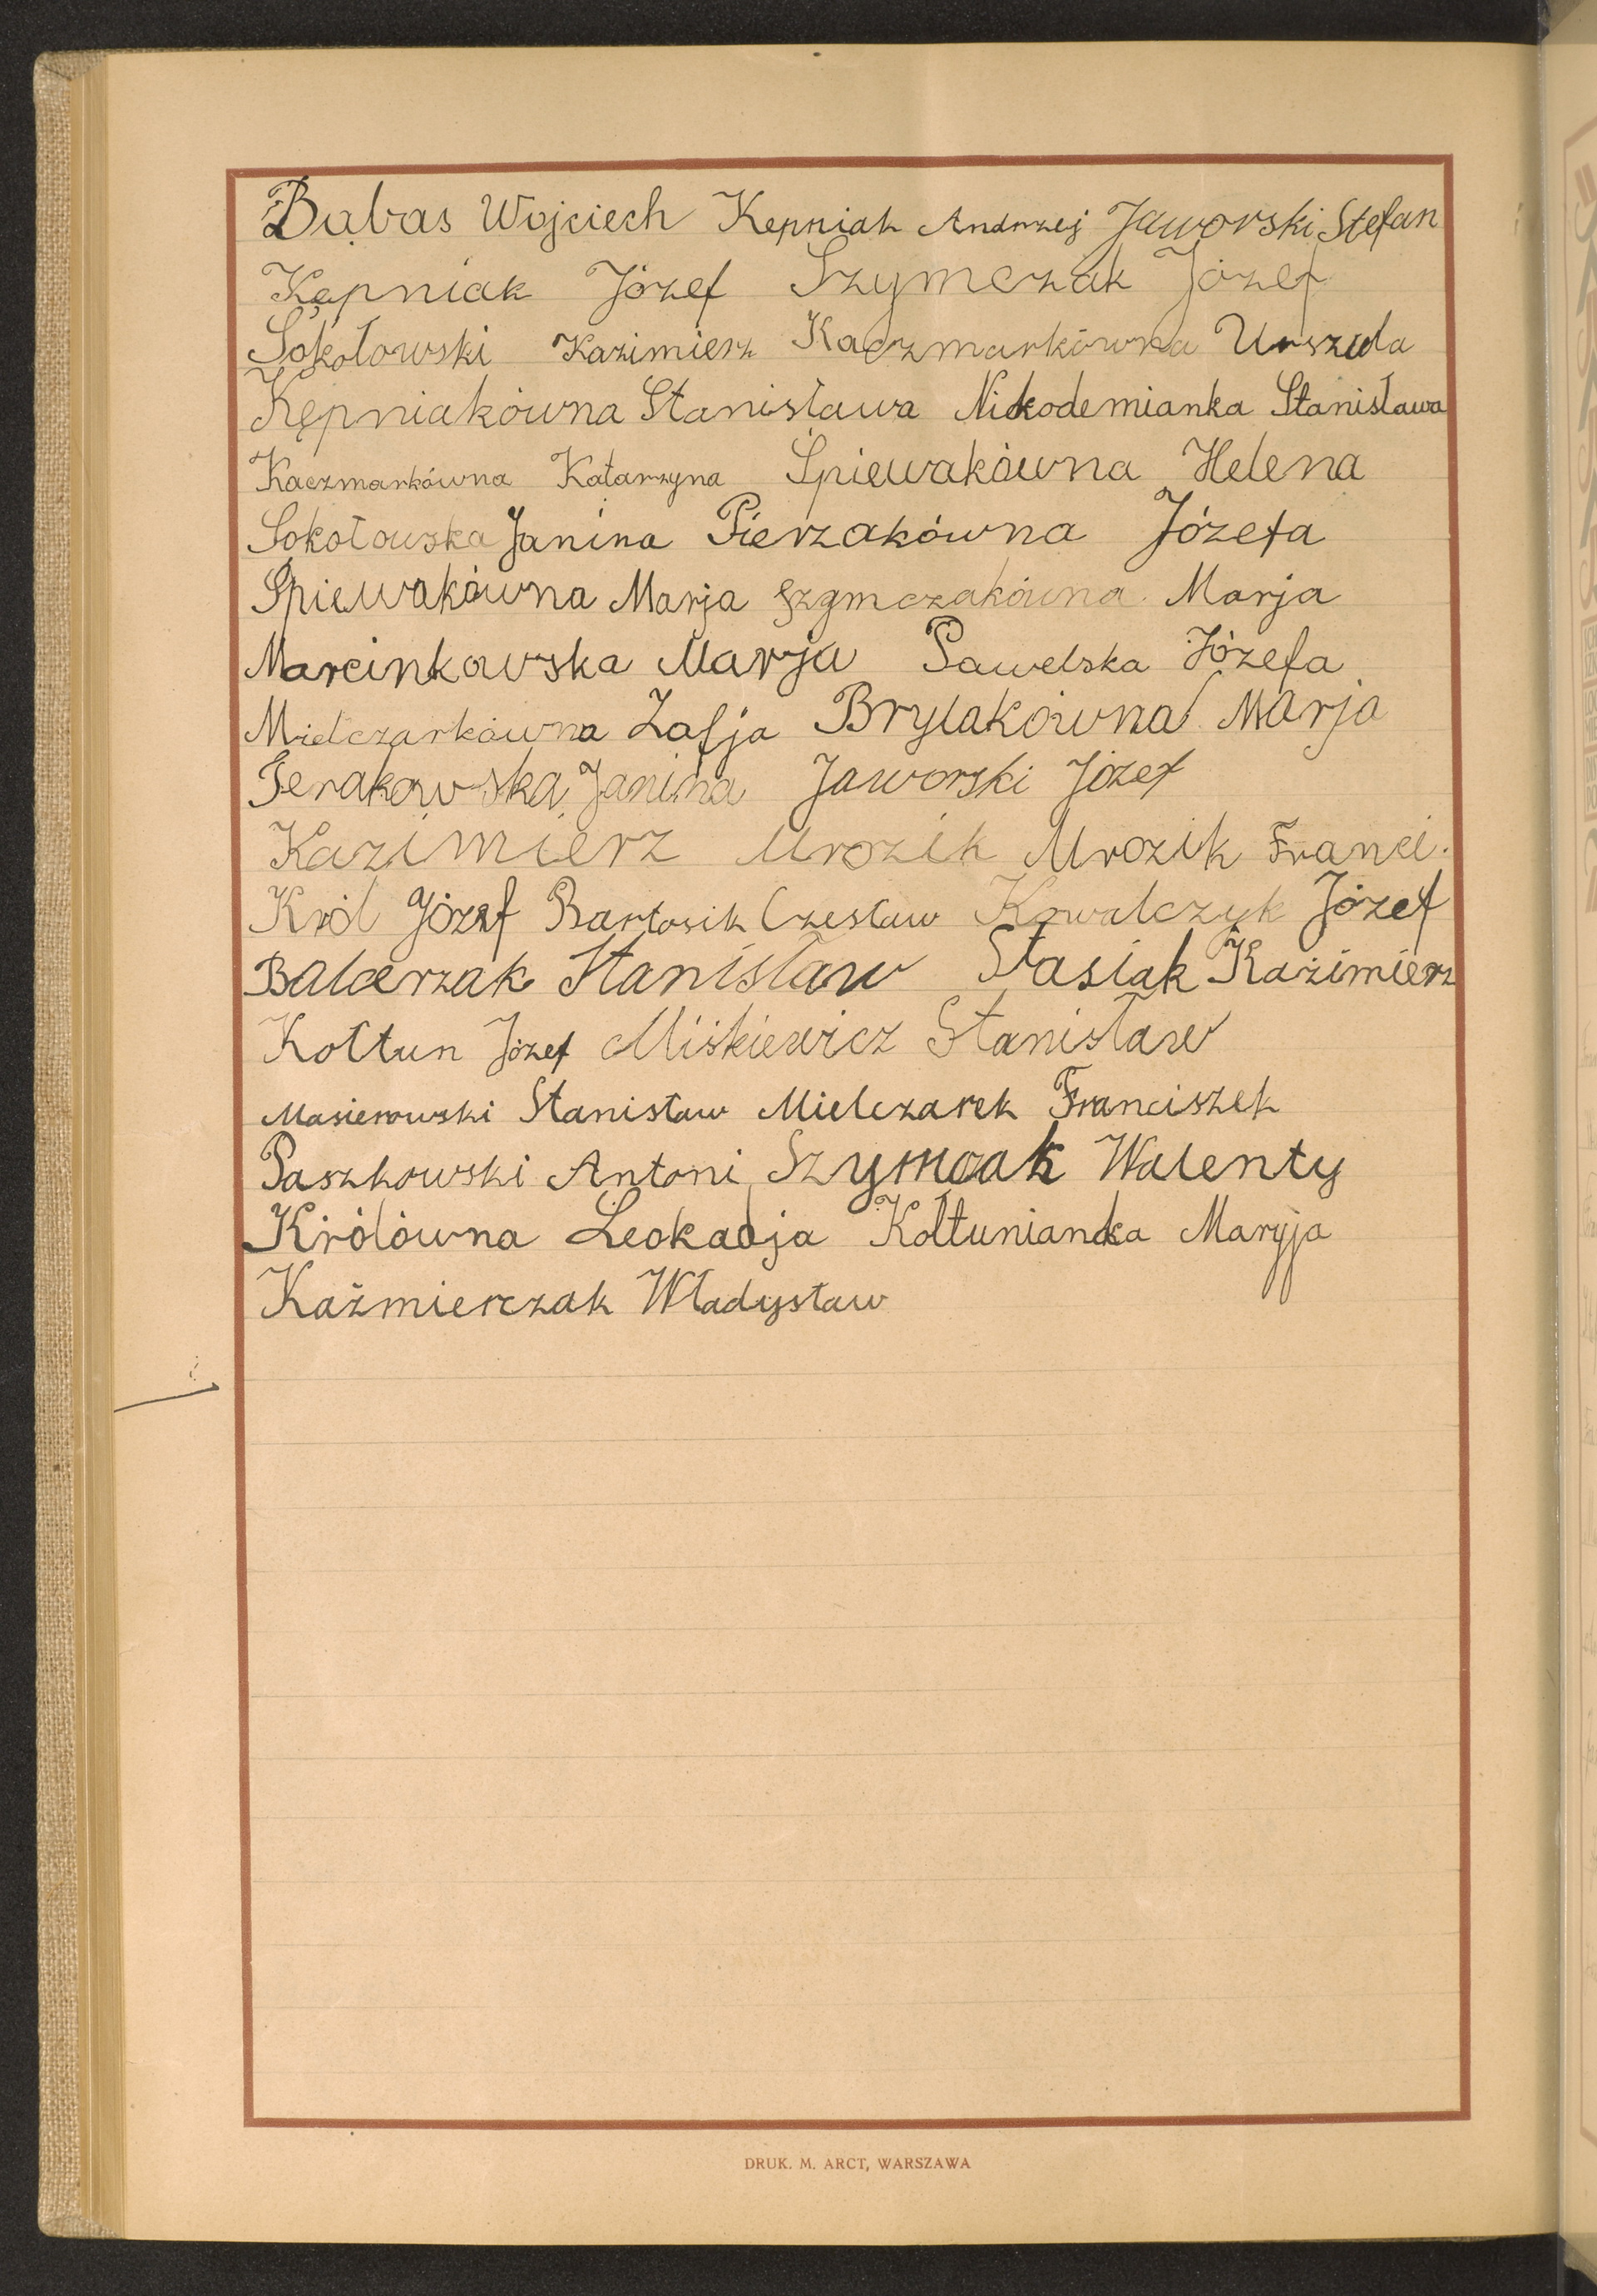 Bąbas Wojciech Kępniak Andrzej Jaworski Stefan
Kępniak Józef Szymczak Józef
Sokołowski Kazimierz Kaczmarkówna Urszula
Kępniakówna Stanisława Nickodemianka Stanisława
Kaczmarkówna Katarzyna Śpiewakówna Helena
Sokołowska Janina Pierzakówna Józefa
Śpiewakówna Marja Szymczakówna Marja
Marcinkowska Marja Pawelska Józefa
Mielczarkówna Zofja Brylakówna Marja
Janina Jaworski Józef
Kazimierz Mrozik Mrozik Franci.
Król Józef Bartosik Czesław Kowalczyk Józef
Balcerzak Stanisław Stasiak Kazimierz
Kołtun Józef Miśkiewicz Stanisław
Masierowski Stanisław Mielczarek Franciszek
Paszkowski Antoni Szymcak Walenty
Królówna Leokadja Kołtunianka Maryja
Kaźmierczak Władysław
DRUK. M. ARCT, WARSZAWA